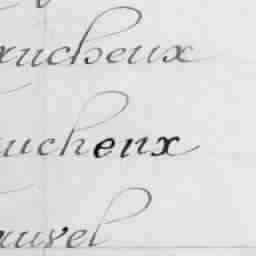 aucheux
aucheux
auvel